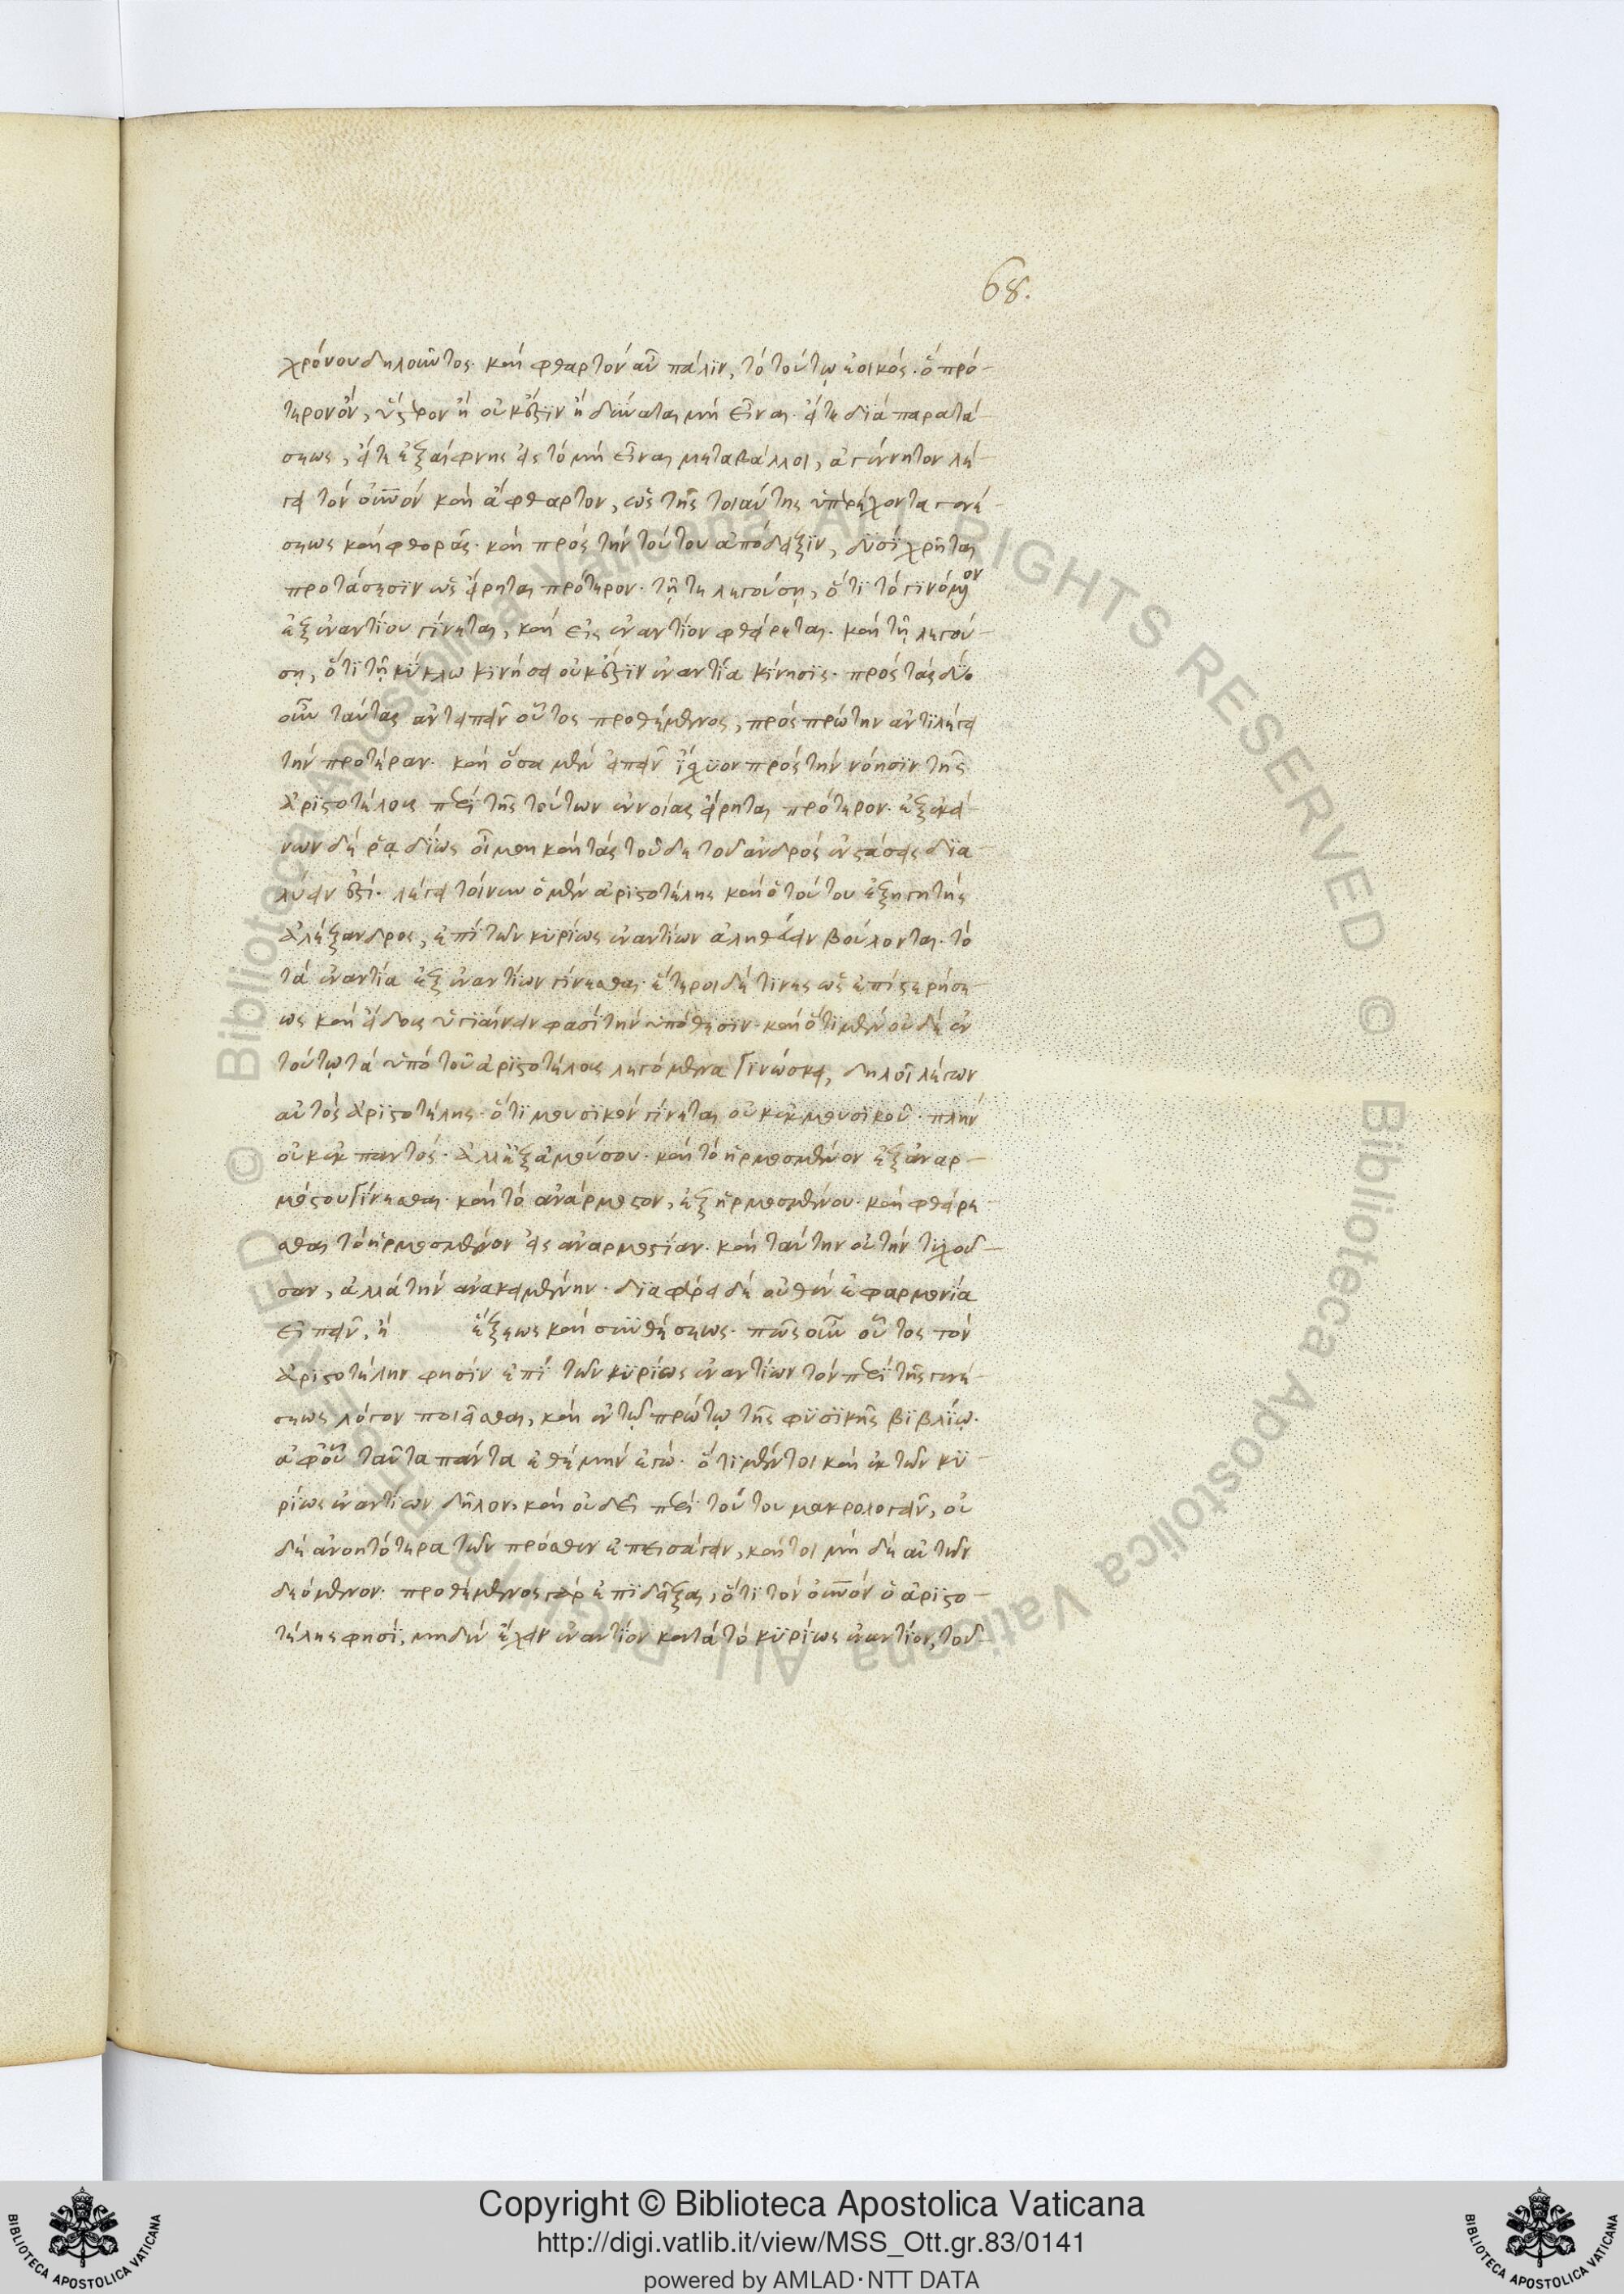 68.
χρόνου δηλοῦντος· καὶ φθαρτὸν αὖ πάλιν, τὸ τούτῳ ἐοικός· ὃ πρό-
τερον ὄν, ὕστερον ἢ οὐκ ἔστιν ἢ δύναται μὴ εἶναι· εἴτε διὰ παρατά-
σεως, εἴτε ἐξαίφνης εἰς τὸ μὴ εἶναι μεταβάλλοι, ἀγέννητον λέ-
γει τὸν οὐνον καὶ ἄφθαρτον, ὡς τῆς τοιαύτης ὑπερέχοντα γενέ-
σεως καὶ φθορᾶς· καὶ πρὸς τὴν τούτου ἀπόδειξιν, δυσὶ χρῆται
προτάσεσιν ὡς εἴρηται πρότερον· τῇ τε λεγούσῃ, ὅτι τὸ γινόμενον
ἐξ ἐναντίου γίνεται, καὶ εἰς ἐναντίον φθείρεται· καὶ τῇ λεγού-
σῃ, ὅτι τῇ κύκλω κινήσει οὐκ ἔστιν ἐναντία κίνησις· πρὸς τὰς δύο
οὖν ταύτας ἀντειπεῖν οὗτος προθέμενος, πρὸς πρώτην ἀντιλέγει
τὴν προτέραν· καὶ ὅσα μὲν εἰπεῖν ἴσχυον πρὸς τὴν νόησιν τῆς
ἀριστοτέλους περὶ τῆς τούτων ἐννοίας εἴρηται πρότερον· ἐξ ἐκεί-
νων δὲ ῥᾳδίως οἶμαι καὶ τὰς τοῦδε τοῦ ἀνδρὸς ἐνστάσεις δια-
λύειν ἐστί· λέγει τοίνυν ὁ μὲν ἀριστοτέλης καὶ ὁ τούτου ἐξηγητὴς
ἀλέξανδρος, ἐπὶ τῶν κυρίως ἐναντίων ἀληθεύειν βούλονται· τὸ
τὰ ἐναντία ἐξ ἐναντίων γίνεσθαι· ἕτεροι δέ τινες ὡς ἐπὶ στερήσε-
ως καὶ εἴδους ὑγιαίνειν φασὶ τὴν ὑπόθεσιν· καὶ ὅτι μὲν οὐδὲ ἐν
τούτῳ τὰ ὑπὸ τοῦ ἀριστοτέλους λεγόμενα γινώσκει, δηλοῖ λέγων
αὐτὸς ἀριστοτέλης· ὅτι μουσικὸν γίνεται οὐκ ἐκ μουσικοῦ· πλὴν
οὐκ ἐκ παντός· ἀλλ' ἢ ἐξ ἀμούσου· καὶ τὸ ἡρμοσμένον ἐξ ἀναρ-
μόστου γίνεσθαι· καὶ τὸ ἀνάρμοστον, ἐξ ἡρμοσμένου· καὶ φθείρε-
σθαι τὸ ἡρμοσμένον εἰς ἀναρμοστίαν· καὶ ταύτην οὐ τὴν τυχοῦ-
σαν, ἀλλὰ τὴν ἀντικειμένην· διαφέρει δὲ οὐθὲν ἐφ' ἁρμονία
εἰπεῖν, ἢ ἕξεως καὶ συνθέσεως· πῶς οὖν οὗτος τὸν
ἀριστοτέλην φησὶν ἐπὶ τῶν κυρίως ἐναντίων τὸν περὶ τῆς γενέ-
σεως λόγον ποιεῖσθαι, καὶ ἐν τῷ πρώτῳ τῆς φυσικῆς βιβλίῳ·
ἀφ' οὗ ταῦτα πάντα ἐθέμην ἐγώ· ὅτι μέντοι καὶ ἐκ τῶν κυ-
ρίως ἐναντίων δῆλον· καὶ οὐ δεῖ περὶ τούτου μακρολογεῖν, οὐ
δὲ ἀνοητότερα τῶν πρόσθεν ἐπεισάγειν, καίτοι μὴ δὲ αὐτῶν
δεόμενον· προθέμενος γὰρ ἐπιδεῖξαι, ὅτι τὸν οὐνον ὁ ἀριστο-
τέλης φησὶ, μηδὲν ἔχειν ἐναντίον κατὰ τὸ κυρίως ἐναντίον, τοῦ-
Copyright © Biblioteca Apostolica Vaticana
http://digi.vatlib.it/view/MSS_Ott.gr.83/0141
powered by AMLAD·NTT DATA